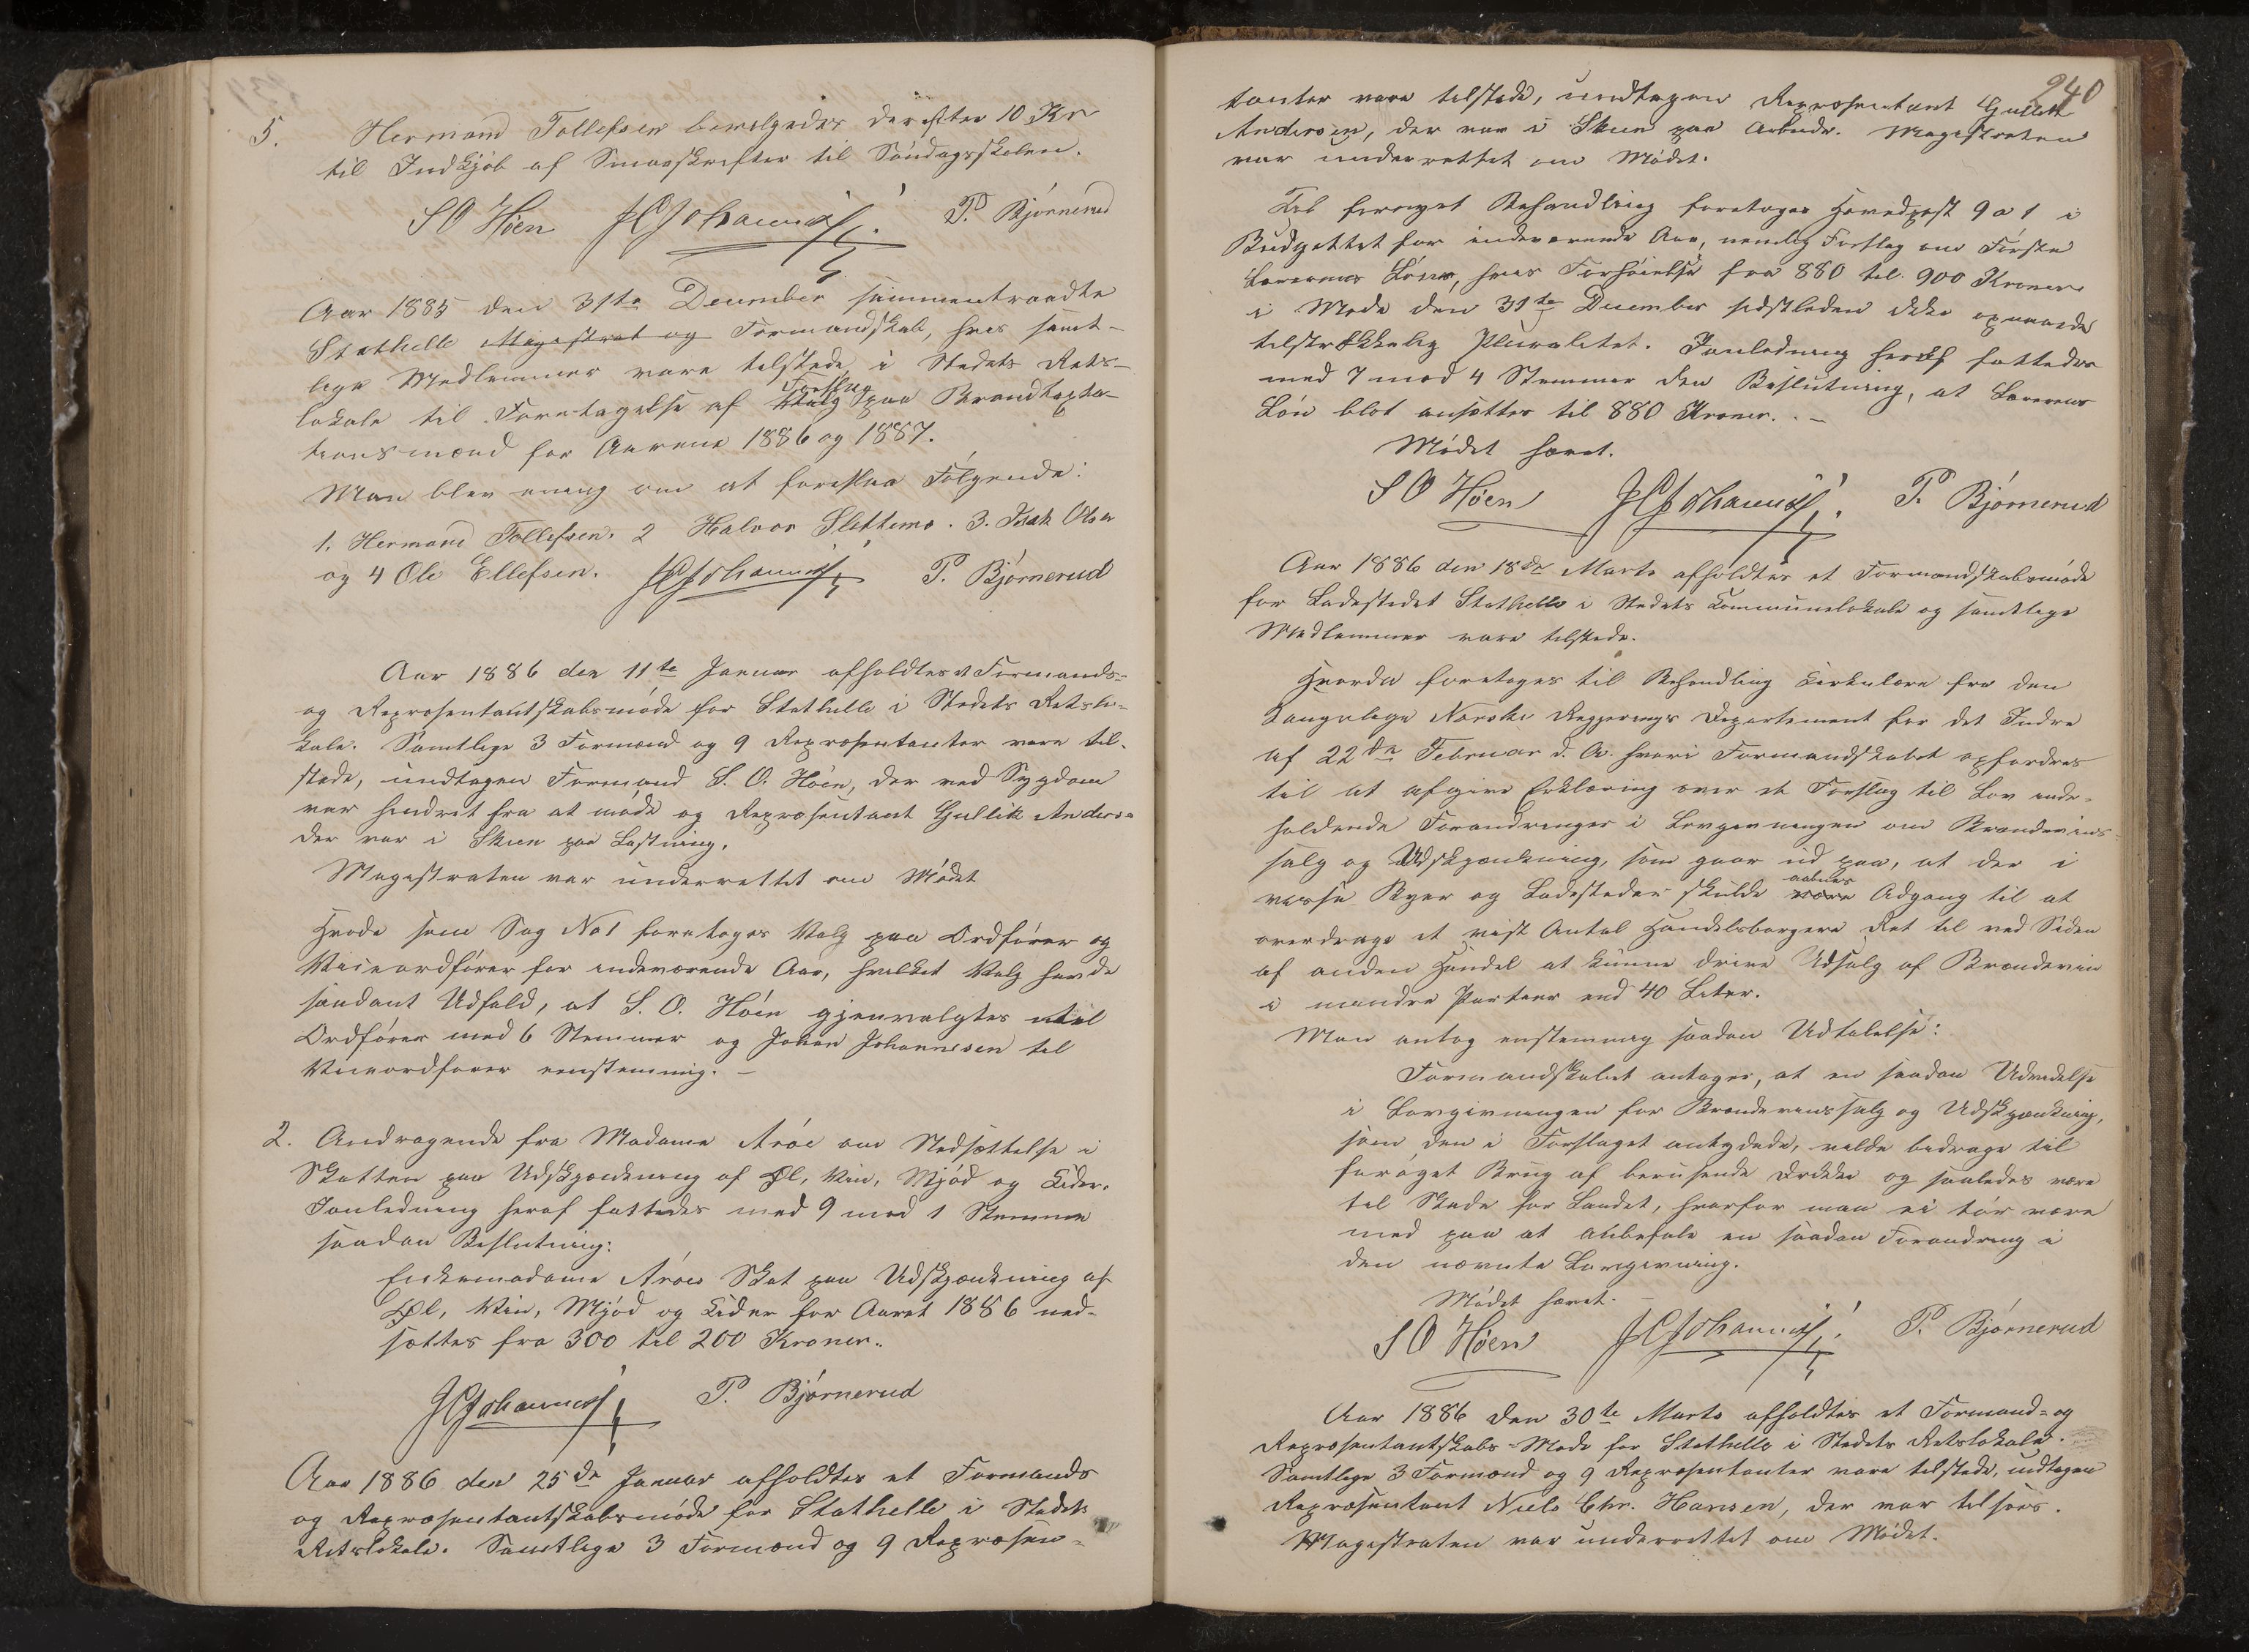 5. Hermand Tollefsen bevilgedes derefter 10 Kr
til Indkjöb af Smaaskrifter til Söndagsskolen.
S O Höen JCJohannes. P. Björnerud
Aar 1885 den 31te December sammentraadte
Stathelle Magistrat og Formandskab, hvis samt-
lige Medlemmer vare tilstede i Stedets Rets-
lokale til Foretagelse af Valg Forslag paa Brandtaxta-
tionsmænd for Aarene 1886 og 1887.
Man blev enig om at foreslaa Fölgende:
1. Hermand Tollefsen. 2 Halvor Slettemo. 3. Isak Olsen
og 4 Ole Ellefsen. JCJohannes P. Björnerud
Aar 1886 den 11te Januar afholdtes et Formands-
og Repræsentantskabsmöde for Stathelle i Stedets Retslo-
kale. Samtlige 3 Formænd og 9 Repræsentanter vare til-
stede, undtagen Formand S. O. Höen, der ved Sygdom
var hindret fra at möde og Repræsentant Gullik Anders-
der var i Skien paa Lastning.
Magistraten var underrettet om Mödet
Hvoda som Sag No 1 foretoges Valg paa Ordförer og
Viceordförer for indeværende Aar, hvilket Valg havde
saadant Udfald, at S. O. Höen gjenvalgtes til
Ordförer med 6 Stemmer og Johan Johannesen til
Viceordförer eenstemmig. –
2. Andragende fra Madame Aröe om Nedsættelse i
Skatten paa Udskjænkning af Öl, Vin, Mjöd og Cider.
I Anledning heraf fattedes med 9 mod 1 Stemme
saadan Beslutning:
Enkemadame Aröes Skat paa Udskjænkning af
Öl, Vin, Mjöd og Cider for Aaret 1886 ned-
sættes fra 300 til 200 Kroner.
JCJohannes P. Björnerud
Aar 1886 den 25de Januar afholdtes et Formands
og Repræsentantskabsmöde for Stathelle i Stedets
Retslokale. Samtlige 3 Formænd og 9 Repræsen-
240
tanter vare tilstede, undtagen Repræsentant Gullik
Andersen, der var i Skien paa Arbeide. Magistraten
var underrettet om Mödet.
Til fornyet Behandling foretoges Hovedpost 9 a 1 i
Budgettet for indeværende Aar, nemlig Forslag om Förste
Lærerens Lön, hvis Forhöielse fra 880 til 900 Kroner
i Möde den 31te December sidstleden ikke opnaaede
tilstrækkelig Pluralitet. I Anledning heraf fattedes
med 7 mod 4 Stemmer den Beslutning, at Lærerens
Lön blot ansættes til 880 Kroner. –
Mödet hævet.
S O Höen JCJohannes. P. Björnerud
Aar 1886 den 18de Marts afholdtes et Formandskabsmöde
for Ladestedet Stathelle i Stedets Kommunelokale og samtlige
Medlemmer vare tilstede.
Hvorda foretoges til Behandling Cirkulære fra den
Kongelige Norske Regjerings Departement for det Indre
af 22de Februar d. A. hvori Formandskabet opfordres
til at afgive Erklæring over et Forslag til Lov inde-
holdende Forandringer i Lovgivningen om Brændevins-
salg og Udskjænkning, som gaar ud paa, at der i
visse Byer og Ladesteder skulde være aabnes Adgang til at
overdrage et vist Antal Handelsborgere Ret til ved Siden
af anden Handel at kunne drive Udsalg af Brændevin
i mindre Partier end 40 Liter.
Man antog enstemmig saadan Udtalelse:
Formandskabet antager, at en saadan Udvidelse
i Lovgivningen for Brændevinssalg og Udskjænkning,
som den i Forslaget antydede, vilde bidrage til
foröget Brug af berusende Drikke og saaledes være
til Skade for Landet, hvorfor man ei tör være
med paa at anbefale en saadan Forandring i
den nævnte Lovgivning.
Mödet hævet. –
S O Höen JCJohannes. P. Björnerud
Aar 1886 den 30te Marts afholdtes et Formand- og
Repræsentantskabs-Möde for Stathelle i Stedets Retslokale.
Samtlige 3 Formænd og 9 Repræsentanter vare tilstede, undtagen
Repræsentant Niels Chr. Hansen, der var tilsöes.
Magistraten var underrettet om Mödet.